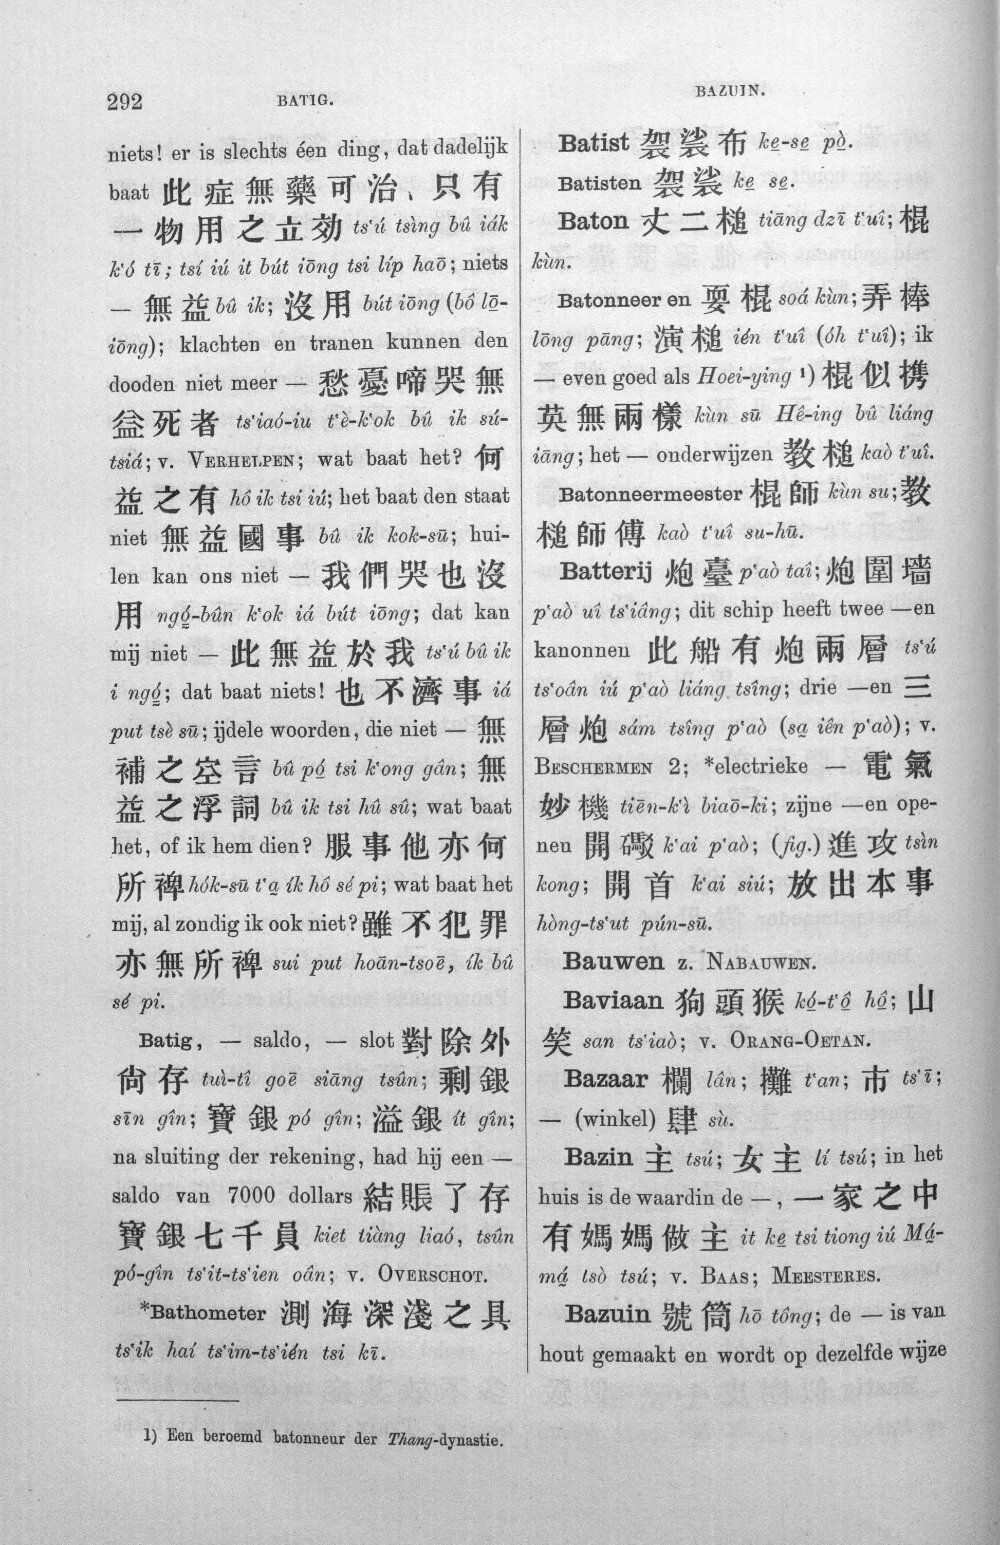 292
BATIG.
BAZUIN.
niets! er is slechts éen ding, dat dadelijk
baat 此症無藥可治、只有
一物用之立効 ts‘ú tsìng bû iák
k‘ó tī; tsí iú it bút iōng tsi líp haō; niets
— 無益 bû ik; 沒用 bút iōng (bô lō-
iōng); klachten en tranen kunnen den
dooden niet meer — 愁憂啼哭無
益死者 ts‘iaó-iu t‘è-k‘ok bû ik sú-
tsiá; v. VERHELPEN; wat baat het? 何
益之有 hô ik tsi iú; het baat den staat
niet 無益國事 bû ik kok-sū; hui-
len kan ons niet — 我們哭也沒
用 ngó̤-bûn k‘ok iá bút iōng; dat kan
mij niet — 此無益於我 ts‘ú bû ik
i ngó̤; dat baat niets! 也不濟事 iá
put tsè sū; ijdele woorden, die niet — 無
補之空言 bû pó̤ tsi k‘ong gân; 無
益之浮詞 bû ik tsi hû sû; wat baat
het, of ik hem dien? 服事他亦何
所裨 hók-sū t‘a̤ ík hô sé pi; wat baat het
mij, al zondig ik ook niet? 雖不犯罪
亦無所裨 sui put hoān-tsoē, ík bû
sé pi.
Batig, — saldo, — slot 對除外
尙存 tuì-tî goē siāng tsûn; 剩銀
sīn gîn; 寶銀 pó gîn; 溢銀 ít gîn;
na sluiting der rekening, had hij een —
saldo van 7000 dollars 結賬了存
寶銀七千員 kiet tiàng liaó, tsûn
pó-gîn ts‘it-ts‘ien oân; v. OVERSCHOT.
*Bathometer 測海深淺之具
ts‘ik haí ts‘im-ts‘ién tsi kī.
1) Een beroemd batonneur der Thang-dynastie.
Batist 袈裟布 ke̤-se̤ pò̤.
Batisten 袈裟 ke̤ se̤.
Baton 丈二槌 tiāng dzī t‘uî; 棍
kùn.
Batonneeren 耍棍 soá kùn; 弄棒
lōng pāng; 演槌 ién t‘uî (óh t‘uî); ik
— even goed als Hoei-ying ¹) 棍似携
英無兩樣 kùn sū Hê-ing bû liáng
iāng; het — onderwijzen 教槌 kaò t‘uî.
Batonneermeester 棍師 kùn su; 教
槌師傅 kaò t‘uî su-hū.
Batterij 炮臺 p‘aò taî; 炮圍墻
p‘aò uî ts‘iâng; dit schip heeft twee —en
kanonnen 此船有炮兩層 ts‘ú
ts‘oân iú p‘aò liáng tsîng; drie —en 三
層炮 sám tsîng p‘aò (sa̤ iên p‘aò); v.
BESCHERMEN 2; *electrieke — 電氣
妙機 tiēn-k‘ì biaō-ki; zijne —en ope-
nen 開礮 k‘ai p‘aò; (fig.) 進攻 tsìn
kong; 開首 k‘ai siú; 放出本事
hòng-ts‘ut pún-sū.
Bauwen z. NABAUWEN.
Baviaan 狗頭猴 kó̤-t‘ô̤ hô̤; 山
笑 san ts‘iaò; v. ORANG-OETAN.
Bazaar 欄 lân; 攤 t‘an; 市 ts‘ī;
— (winkel) 肆 sù.
Bazin 主 tsú; 女主 lí tsú; in het
huis is de waardin de —, 一家之中
有媽媽做主 it ke̤ tsi tiong iú Má̤-
má̤ tsò tsú; v. BAAS; MEESTERES.
Bazuin 號筒 hō tông; de — is van
hout gemaakt en wordt op dezelfde wijze